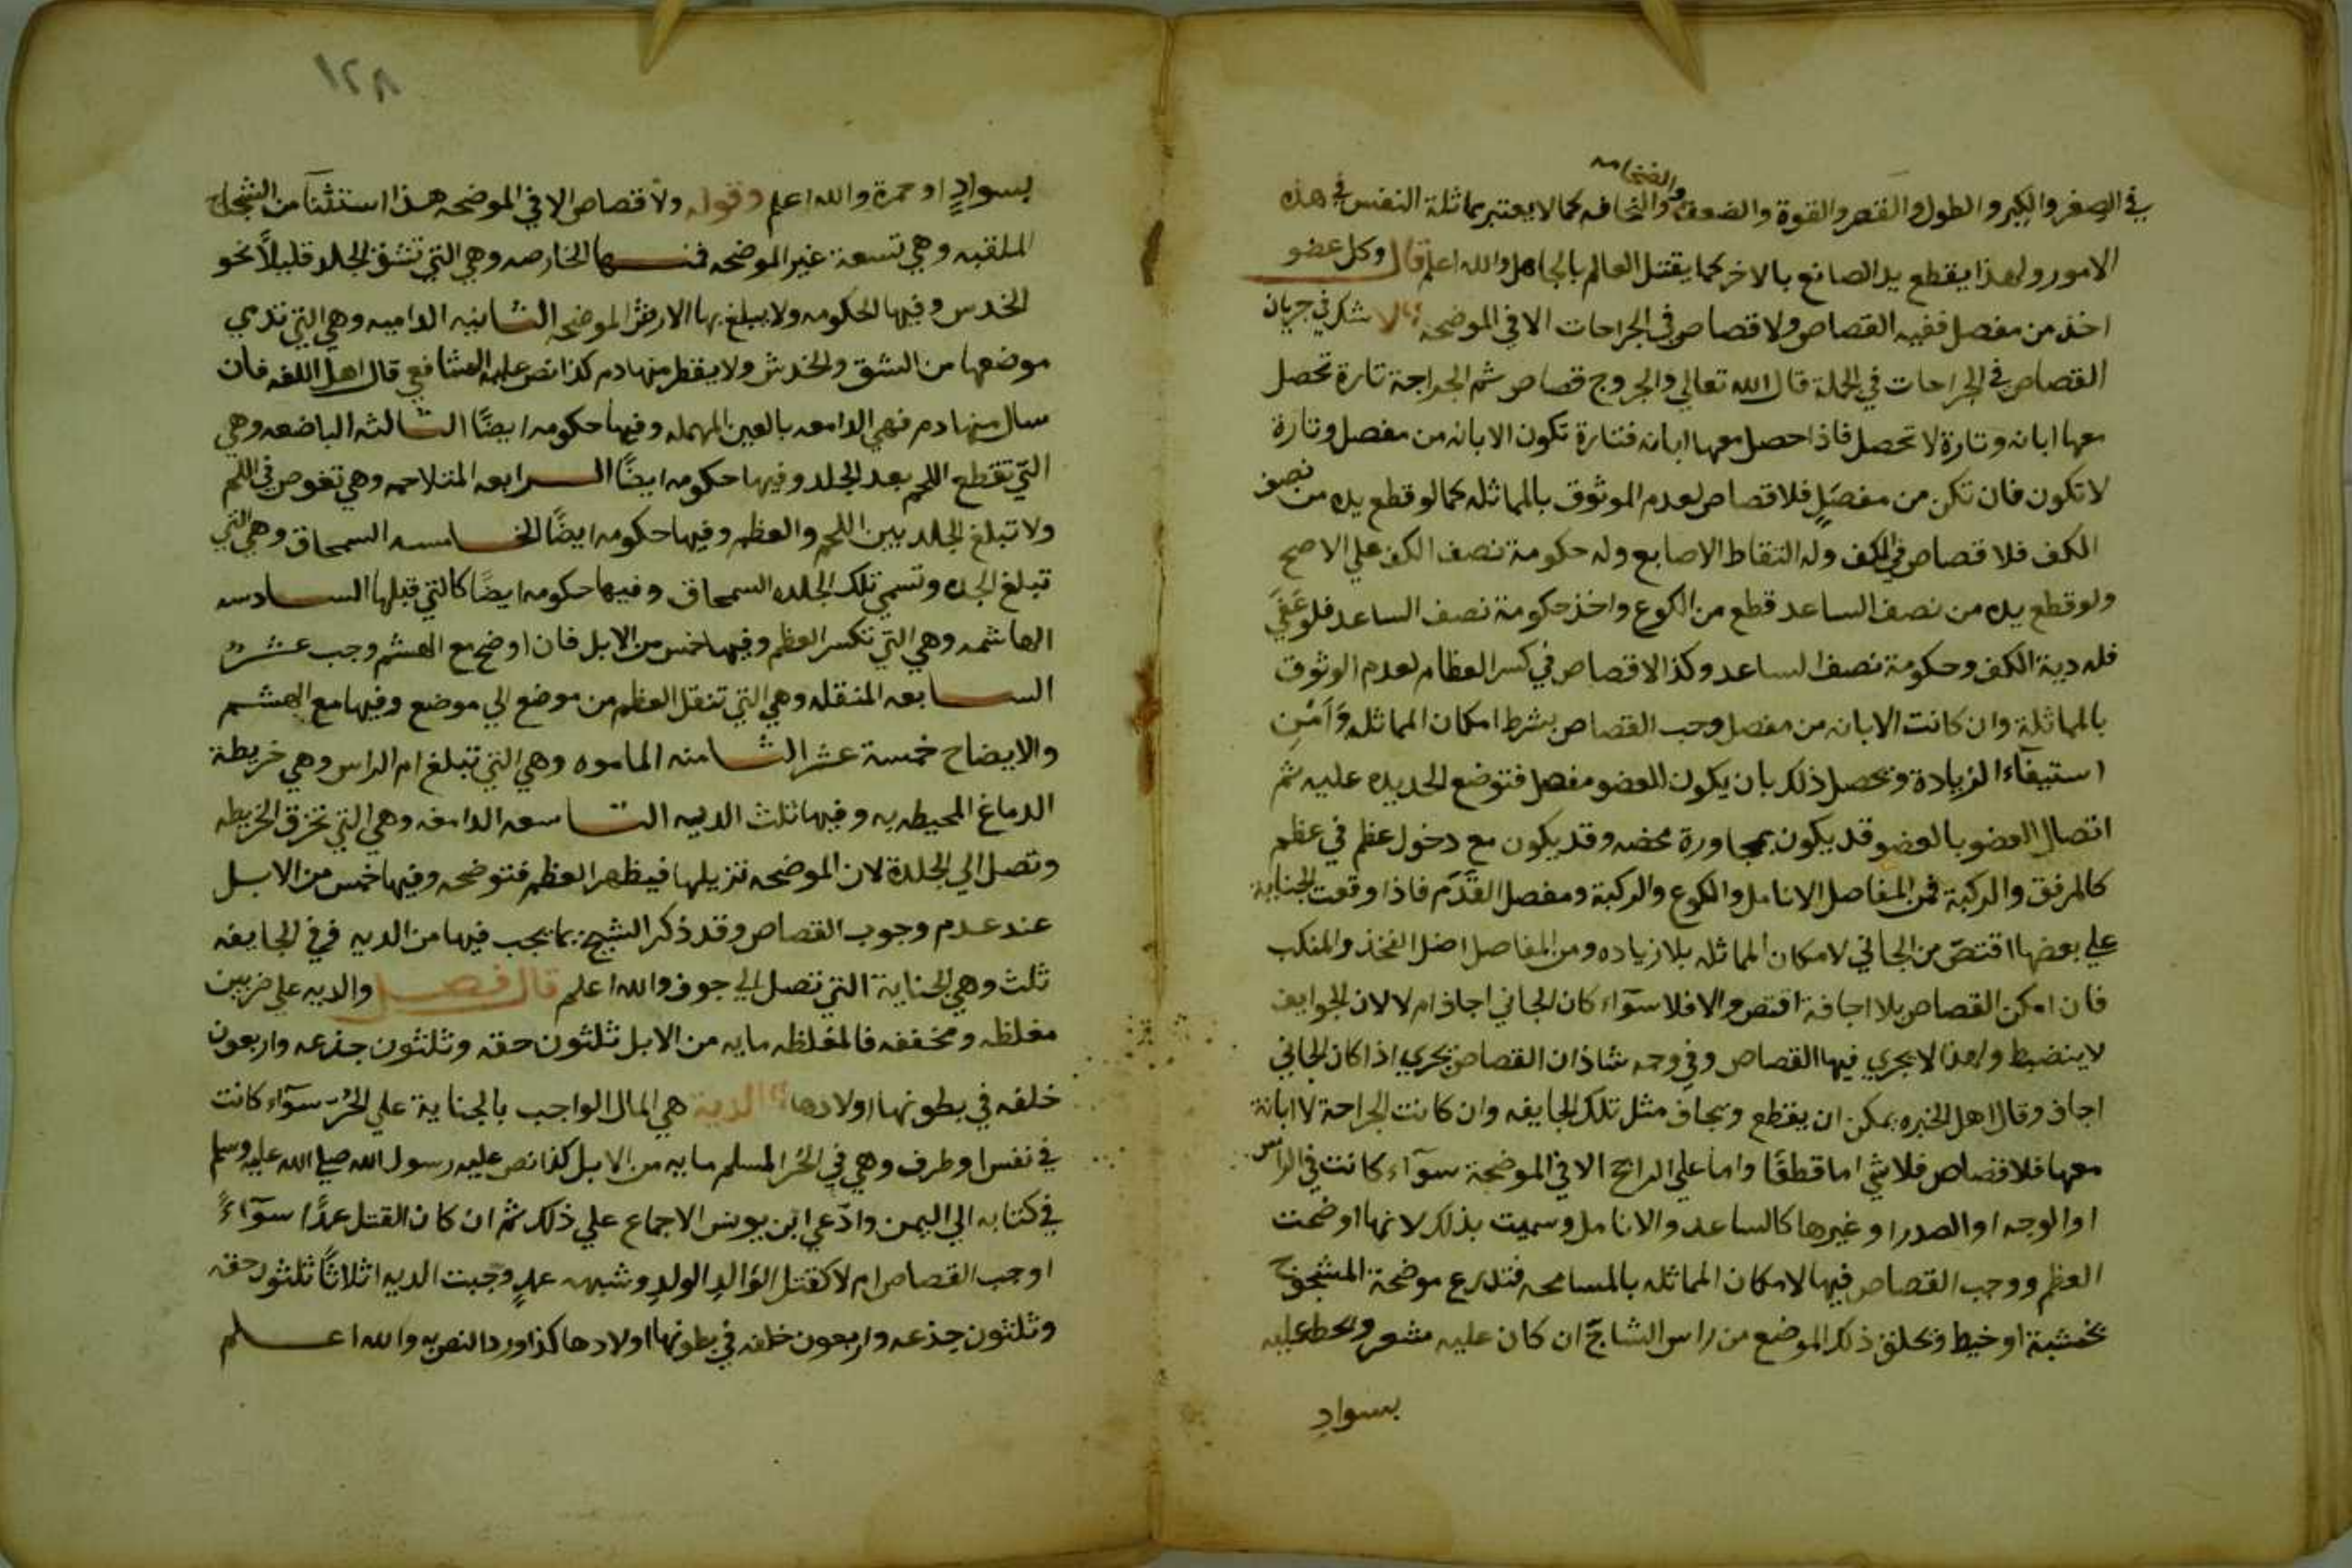 في الصغر والكبر والطول والقصر والقوة والضعف والضخامه والنحافه كما لا يعتبر مماثلة النفس في هذه
الامور ولهذا يقطع يد الصانع بالاخر كما يقتل العالم بالجاهل والله اعلم قال وكل عضو
اخذ من مفصل ففيه القصاص ولا قصاص في الجراحات الا في الموضحه لا شك في جريان
القصاص في الجراحات في الجملة قال الله تعالي والجروح قصاص ثم الجراحة تارة تحصل
معها ابانه وتارة لا تحصل فاذا حصل معها ابانه فتارة تكون الابانه من مفصل وتارة
لا تكون فان تكن من مفصل فلا قصاص لعدم الموثوق بالمماثله كما لو قطع يده من نصف
الكف فلا قصاص في الكف وله التقاط الاصابع وله حكومة نصف الكف علي الاصح
ولو قطع يده من نصف الساعد قطع من الكوع واخذ حكومة نصف الساعد فلو عفي
فله دية الكف وحكومة نصف الساعد وكذا لا قصاص في كسر العظام لعدم الوثوق
بالمماثلة وان كانت الابانه من مفصل وجب القصاص بشرط امكان المماثله وامن
استيفآء الزيادة ويحصل ذلك بان يكون للعضو مفصل فتوضع الحديده عليه ثم
اتصال العضو بالعضو قد يكون بمجاورة محضه وقد يكون مع دخول عظم في عظم
كالمرفق والركبة فمن المفاصل الانامل والكوع والركبة ومفصل القدم فاذا وقعت الجناية
علي بعضها اقتص من الجاني لامكان المماثله بلا زياده ومن المفاصل اصل الفخذ والمنكب
فان امكن القصاص بلا اجافة اقتص والا فلا سوآء كان الجاني اجاف ام لا لان الجوايف
لا ينضبط ولهذا لا يجري فيها القصاص وفي وجه شاذ ان القصاص يجري اذا كان الجاني
اجاف وقال اهل الخبره يمكن ان يقطع ويجاف مثل تلك الجايفه وان كانت الجراحة لا ابانة
معها فلا قصاص فلا شي اما قطعًا واما علي الراجح الا في الموضحة سوآء كانت في الراس
او الوجه او الصدر او غيرها كالساعد والانامل وسميت بذلك لانها اوضحت
العظم ووجب القصاص فيها لامكان المماثله بالمسامحه فتذرع موضحة المشجوج
بخشبة او خيط ويحلق ذلك الموضع من راس الشاج ان كان عليه شعر ويخط عليه
بسواد
١٢٨
بسوادٍ او حمرة والله اعلم وقوله ولا قصاص الا في الموضحه هذا استثنآ من الشجاج
الملقبه وهي تسعة غير الموضحه فمنها الخارصه وهي التي تشق الجلد قليلًا نحو
الخدس وفيها الحكومه ولا يبلغ بها الارش الموضحه الثانيه الداميه وهي التي تدي
موضعها من الشق والخدش ولا يقطر منها دم كذا نص عليه الشافعي قال اهل اللغه فان
سال منها دم فهي الدامعه بالعين المهمله وفيها حكومه ايضًا الثالثه الباضعه وهي
التي تقطع اللحم بعد الجلد وفيها حكومه ايضًا الرابعه المتلاحمه وهي تغوص في اللحم
ولا تبلغ الجلد بين اللحم والعظم وفيها حكومه ايضًا الخامسه السمحاق وهي التي
تبلغ الجلده وتسمي تلك الجلده السمحاق وفيها حكومه ايضًا كالتي قبلها السادسه
الهاشمه وهي التي تكسر العظم وفيها خمس من الابل فان اوضح مع الهشم وجب عشر
السابعه المنقله وهي التي تنقل العظم من موضع الي موضع وفيها مع الهشم
والايضاح خمسة عشر الثامنه الماموه وهي التي تبلغ ام الراس وهي خريطة
الدماغ المحيطه به وفيها ثلث الديه التاسعه الدامغه وهي التي تخرق الخريطه
وتصل الي الجلدة لان الموضحه تزيلها فيظهر العظم فتوضحه وفيها خمس من الابل
عند عدم وجوب القصاص وقد ذكر الشيخ بما يجب فيها من الديه ففي الجايفه
ثلث وهي الجناية التي تصل الي جوف والله اعلم قال فصل والديه علي ضربين
مغلظه ومخففه فالمغلظه مايه من الابل ثلثون حقه وثلثون جذعه واربعون
خلفه في بطونها اولادها الدية هي المال الواجب بالجناية علي الحر سوآء كانت
في نفس او طرف وهي في الحر المسلم مايه من الابل كذا نص عليه رسول الله صلي الله عليه وسلم
في كتابه الي اليمن وادعي ابن يونس الاجماع علي ذلك ثم ان كان القتل عمدًا سوآءً
اوجب القصاص ام لا كقتل الوالد الولد وشبهه عمدٍ وجبت الديه اثلاثًا ثلثون حقه
وثلثون جذعه واربعون خلفه في بطونها اولادها كذا ورد النص به والله اعلم